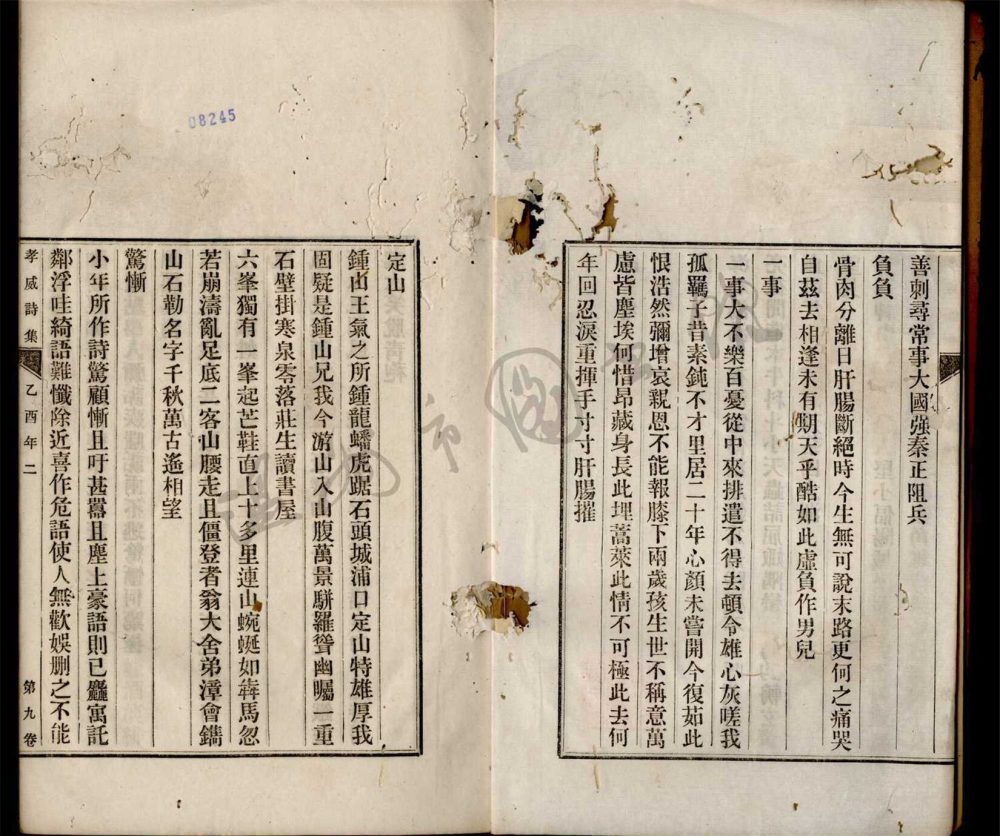 善刺尋常事大國强秦正阻兵
負負
骨肉分離日肝腸斷絕時今生無可說末路更何之痛哭
自茲去相逢未有期天乎酷如此虛負作男兒
一事
一事大不樂百憂從中來排遣不得去頓令雄心灰嗟我
孤羈子昔素鈍不才里居二十年心顏未嘗開今復茹此
恨浩然彌增哀親恩不能報膝下兩歲孩生世不稱意萬
慮皆塵埃何惜昂藏身長此埋蒿萊此情不可極此去何
年回忍淚重揮手寸寸肝腸摧
08245
定山
鍾山王氣之所鍾龍蟠虎踞石頭城浦口定山特雄厚我
固疑是鍾山兄我今游山入山腹萬景駢羅聳幽矚一重
石壁掛寒泉零落莊生讀書屋
六峯獨有一峯起芒鞋直上十多里連山蜿蜒如犇馬忽
若崩濤亂足底二客山腰走且僵登者翁大舍弟漳會鐫
山石勒名字千秋萬古遙相望
驚慚
小年所作詩驚顧慚且吁甚囂且塵上豪語則已麤寓託
鄰浮哇綺語難懺除近喜作危語使人無歡娛刪之不能
孝威詩集
乙酉年二
第九卷